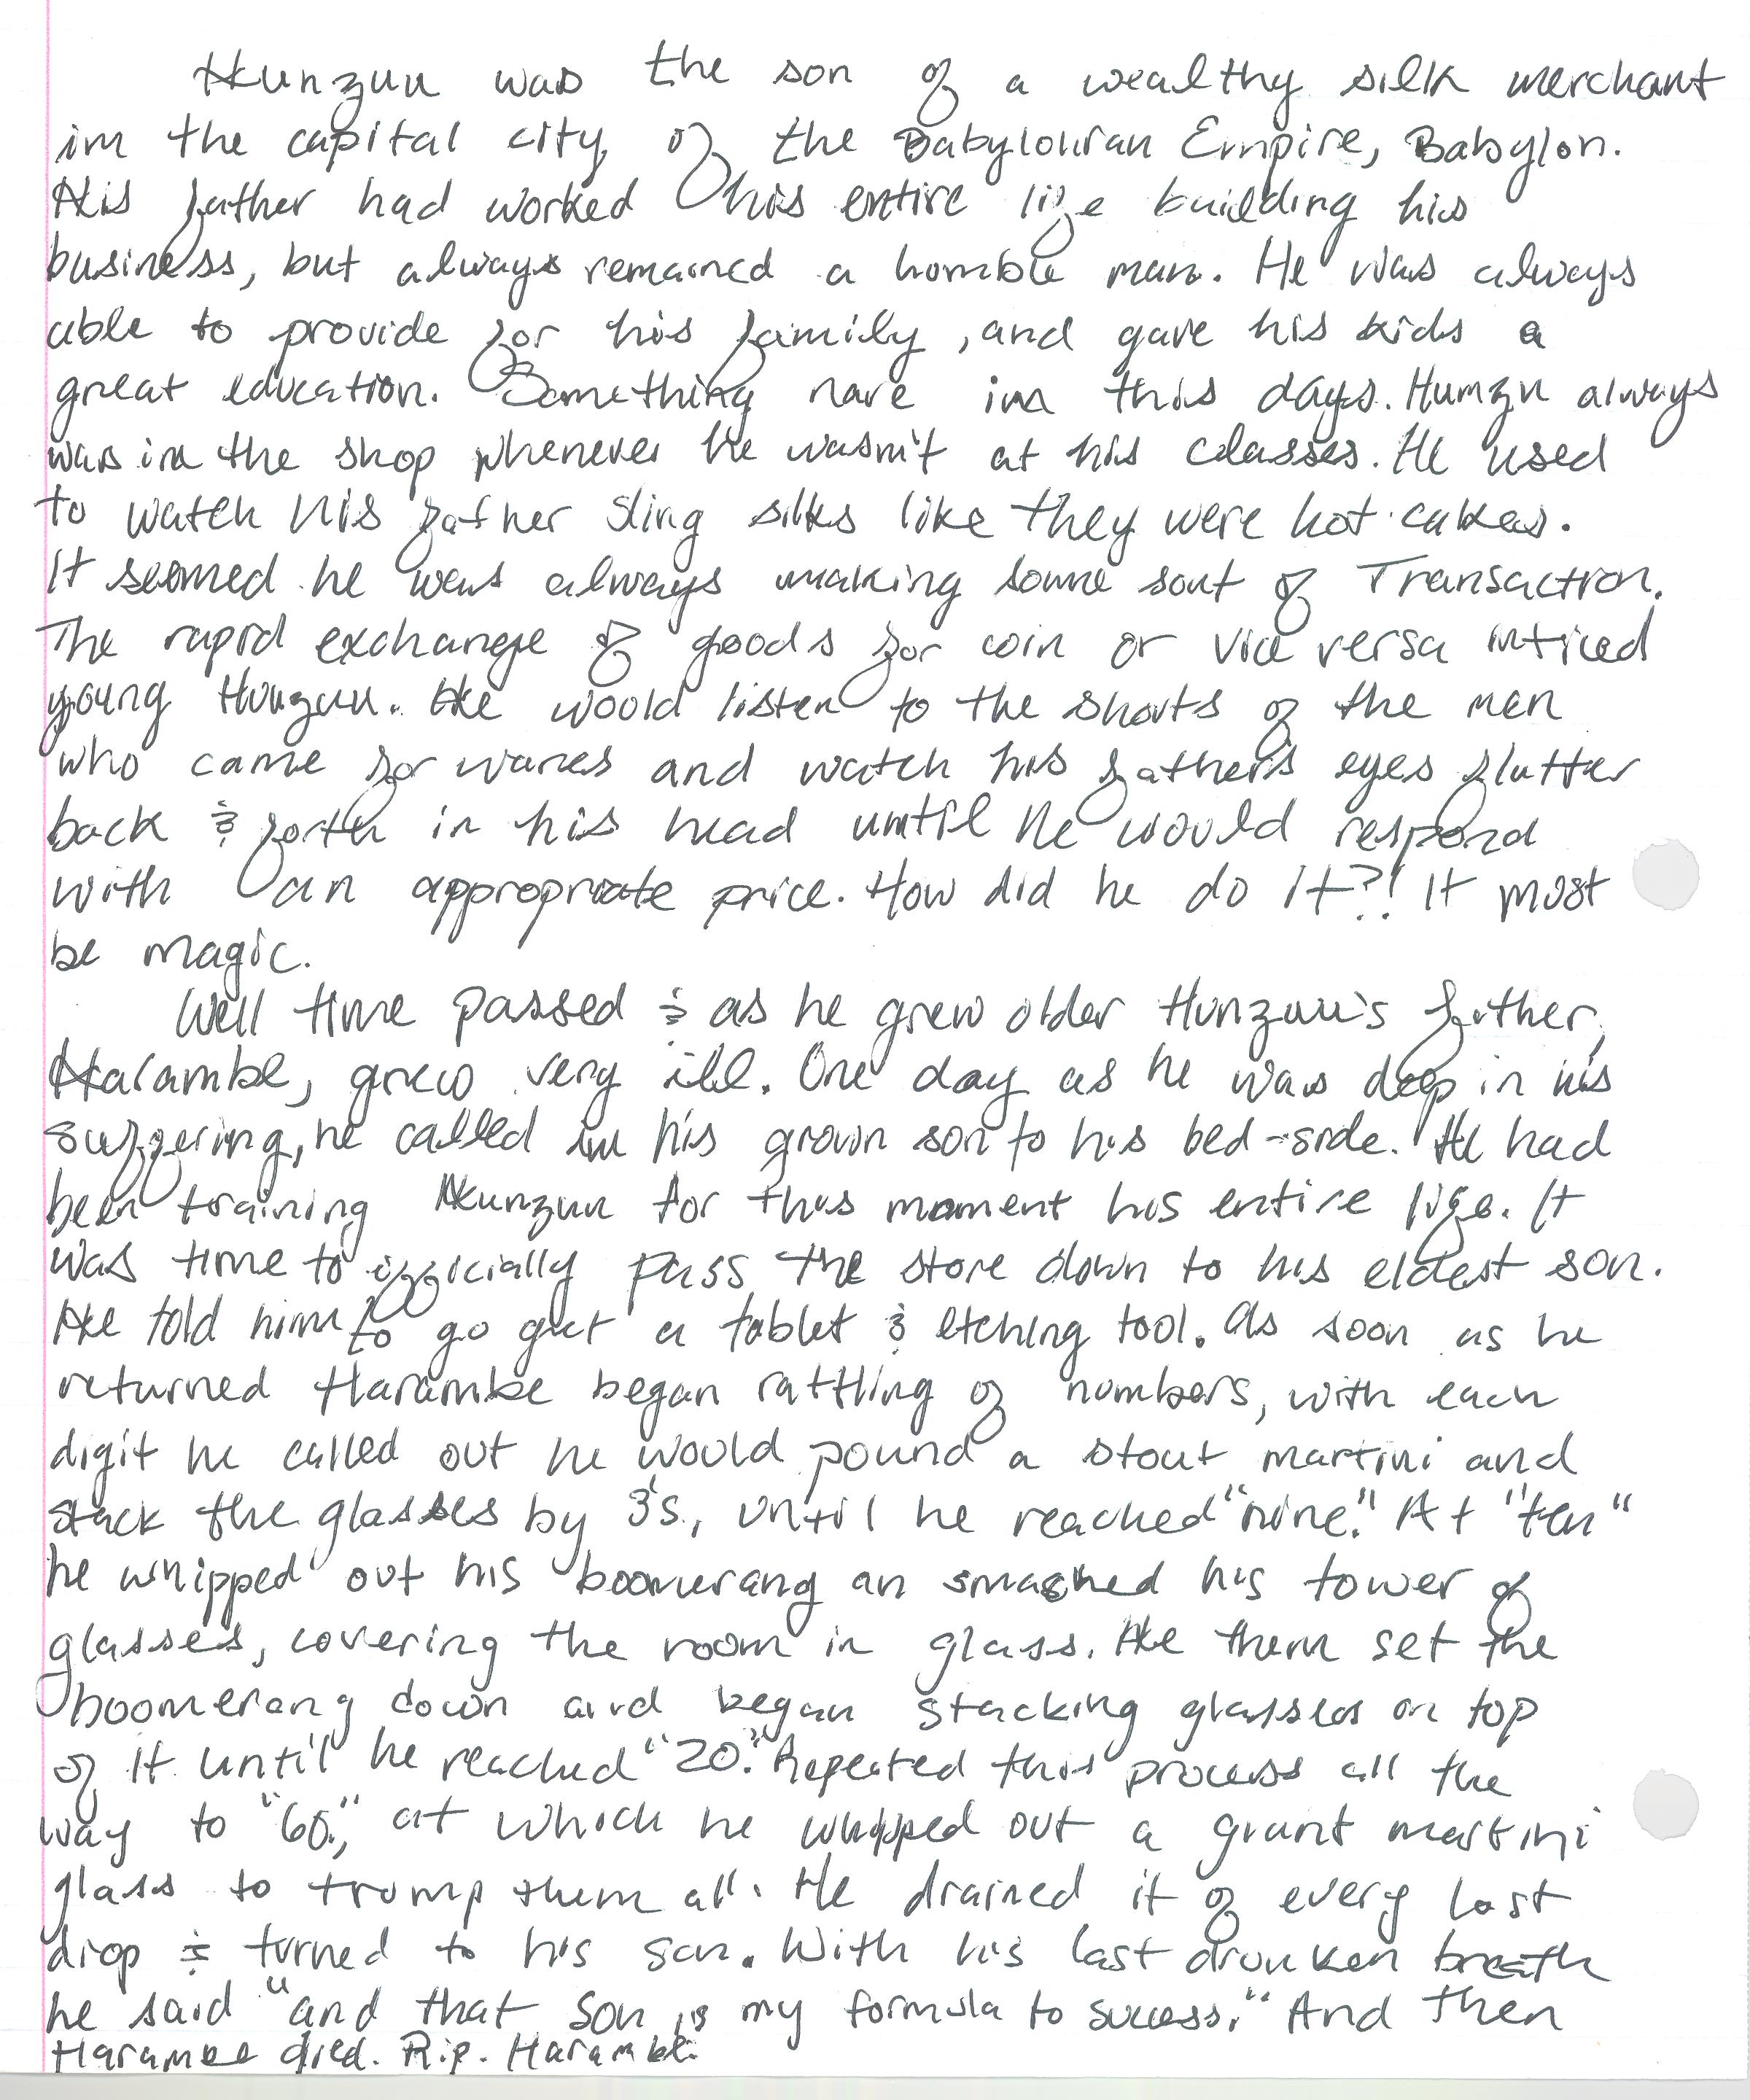 Hunzuu was the son of a wealthy silk merchant
in the capital city of the Babylonian Empire, Babylon.
His father had worked his entire life building his
business, but always remained a homble man. He was always
able to provide for his family, and gave his kids a
great education. Something rare in this days. Humzu always
was in the shop whenever he wasn't at his classes. He used
to watch his father sling silks like they were hot cakes.
It seemed he was always making some sort of Transaction.
The rapid exchange of goods for coin or vice versa inticed
young Hunzuu. He would listen to the shouts of the men
who came for wares and watch his father's eyes flutter
back & forth in his head until he would respond
with an appropriate price. How did he do it?! It most
be magic.
Well time passed & as he grew older Hunzuu's father,
Harambe, grew very ill. One day as he was deep in his
suffering, he called in his grown son to his bed-side. He had
been training Hunzuu for this moment his entire life. It
was time to officially pass the store down to his eldest son.
He told him to go get a tablet & etching tool. As soon as he
returned Harambe began rattling of numbers, with each
digit he called out he would pound a stout martini and
stack the glasses by 3's, until he reached "nine." At "ten"
he whipped out his boomerang an smashed his tower of
glasses, covering the room in glass. He them set the
boomerang down and began stacking glasses on top
of it until he reached "20." Repeated this process all the
way to "60," at which he whipped out a giant martini
glass to tromp them all. He drained it of every last
drop & turned to his son. With his last drunken breath
he said "and that son is my formula to success." And then
Harambe died. R.i.p. Harambe.